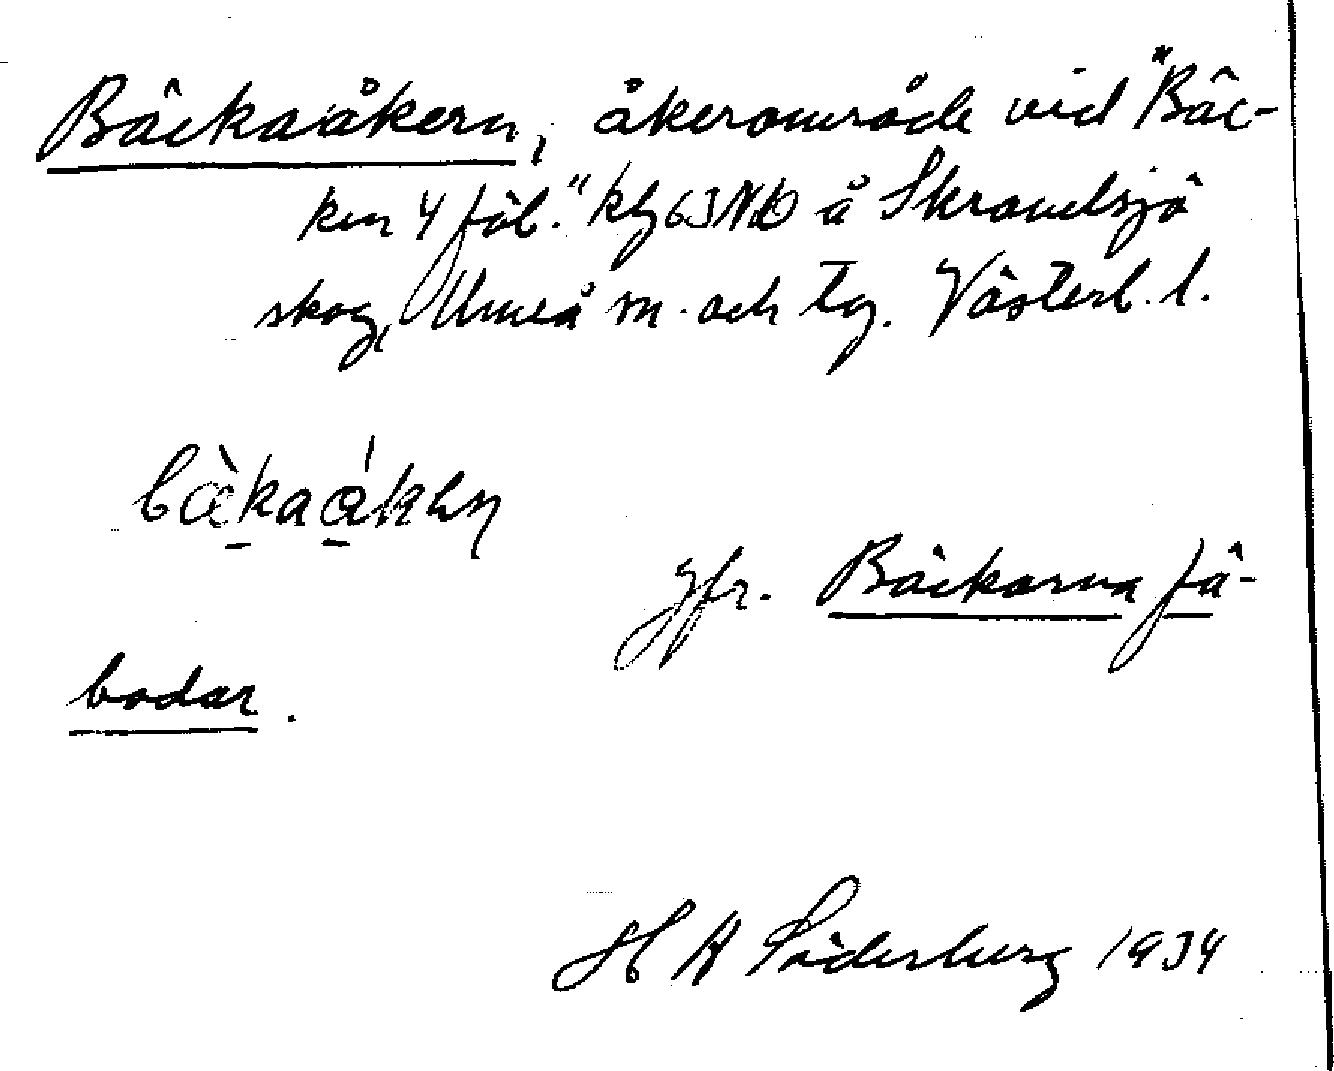 Bäckaåkern, åkerområde vid "Bäc-
ken 4 fäb." kbl 63 NO å Skramelsjö
skog, Umeå m. och tg. Västerb. l.
bæ̀kaákən
Jfr. Bäckarna fä-
bodar.
H A Söderberg 1934